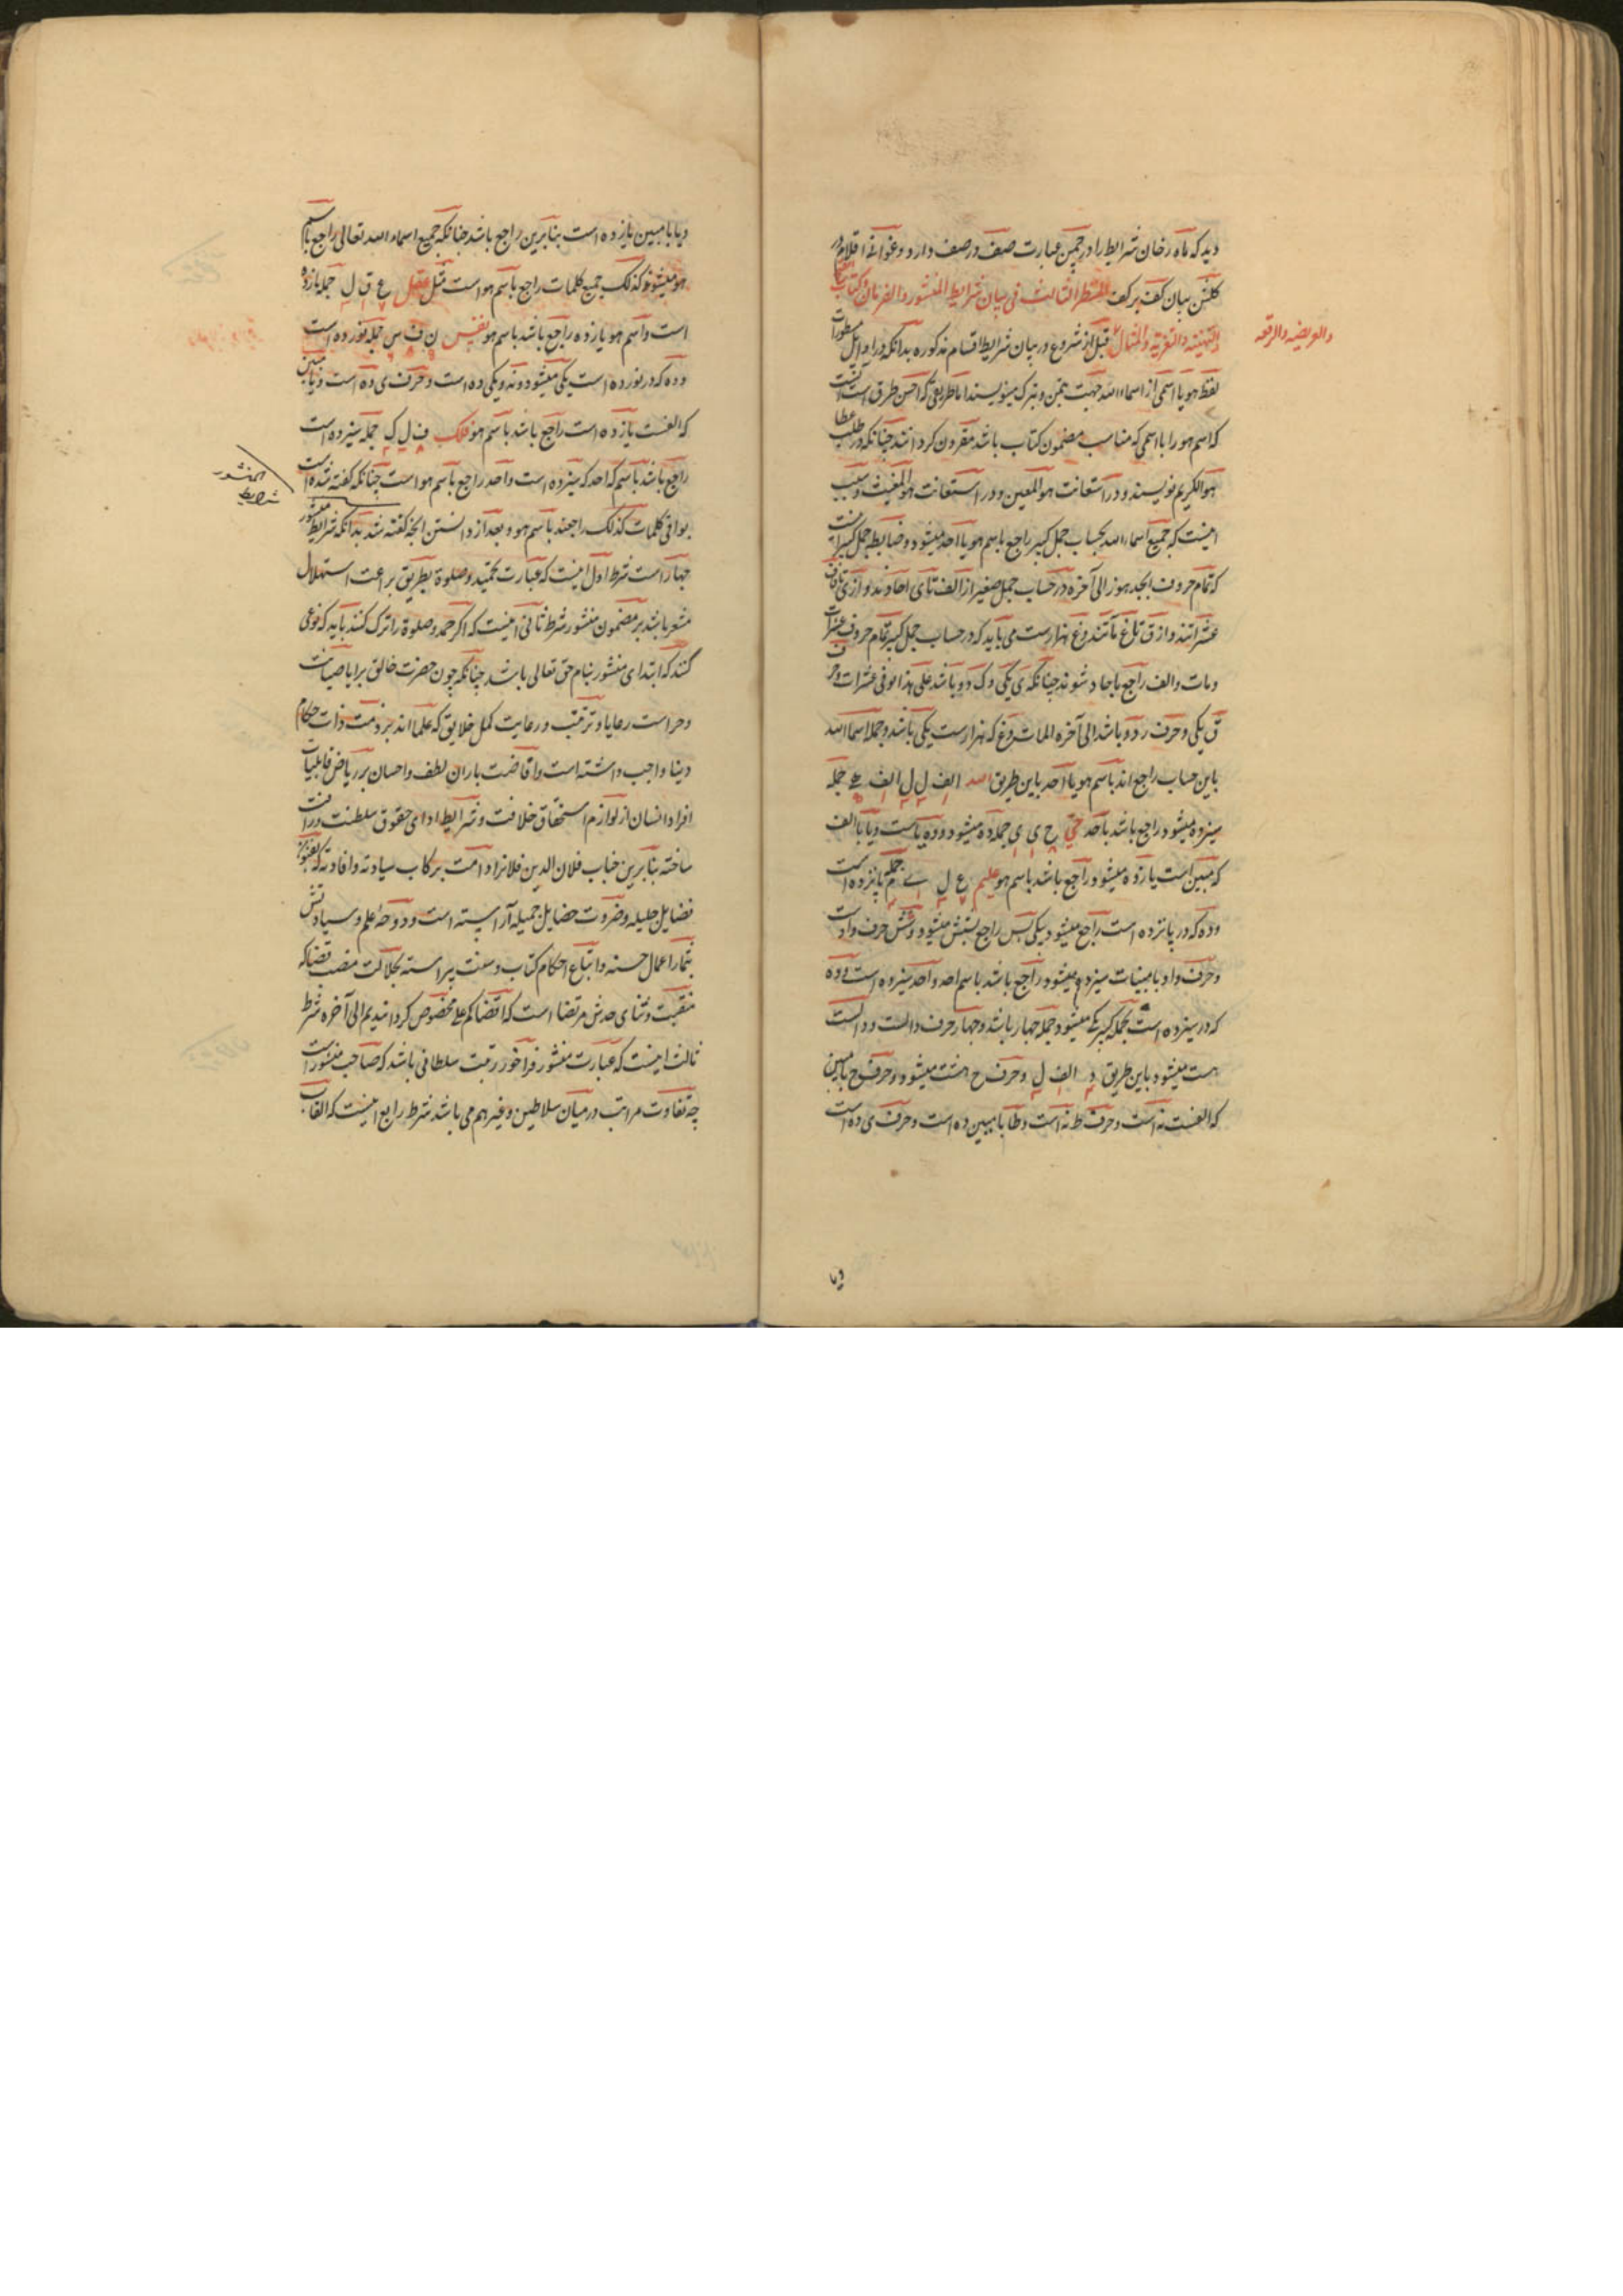 دید که ماه رخان شرایط را در چمن عبارت صف در صف دارد و غوانی اقلام در
کلشن بیان کف بر کف المنظر الثالث فی بیان شرایط المنشور والفرمان وکتاب
التهنیه والتعزیه والمثال قبل از شروع در بیان شرایط اقسام مذکوره بدانکه در اوایل مسطورات
والعریضه والرقعه
لفظ هو یا اسمی از اسماء الله جهت تیمن و تبرک مینویسند اما طریقی که احسن طرق است آنست
که اسم هو را با اسمی که مناسب مضمون کتاب باشد مقرون کردانند چنانکه در طلب عطا
هو الکریم نویسند و در استعانت هو المعین و در استغاثت هو المغیث و سبب
اینست که جمیع اسماء الله بحساب جمل کبیر راجع باسم هو یا احد میشود و ضابطه جمل کبیر آنست
که تمام حروف ابجد هوز الی آخره در حساب جمل صغیر از الف تا ی احادند و از ی تا ق
عشراتند و از ق تا غ مآتند و غ هزارست می باید که در حساب جمل کبیر تمام حروف عشرات
و مات و الف راجع باحاد شوند چنانکه ی یکی و ک دو باشد علی هذا بوافی عشرات و حرف
ق یکی و حرف ر دو باشد الی آخره المات و غ که هزارست یکی باشد و جمله اسما الله
باین حساب راجع اند باسم هو یا احد باین طریق الله الف ل ل الف ه جمله
سیزده میشود و راجع باشد باحد حی ح ی ی جمله ده میشود و ده یاست و یا با الف
که مبین است یازده میشود و راجع باشد باسم هو علیم ع ل ی م جمله پانزده است
و ده که در پانزده است راجع میشود بیکی پس راجع بشش میشود و شش حرف واو است
و حرف واو با مبینات سیزده میشود و راجع باشد باسم احد و احد سیزده است و ده
که در سیزده است بجمله کبیر یکی میشود و جمله چهار باشد و چهار حرف دالست و دالست
هست میشود باین طریق د الف ل و حرف ح هشت میشود و حرف ح با مبین
که الفست نه است و حرف ط نه است و طا با مبین ده است و حرف ی ده است
و یا با مبین یازده است بنابرین راجع باشد چنانکه جمیع اسماء الله تعالی راجع باسم
هو میشوند کذلک جمیع کلمات راجع باسم هو است مثل عقل ع ق ل جمله یازده
است و اسم هو یازده راجع باشد باسم هو نفس ن ف س جمله نوزده است
و ده که در نوزده است یکی میشود و نه و یکی ده است و حرف ی ده است و یا با مبین
که الفست یازده است راجع باشد باسم هو فلک ف ل ک جمله سیزده است
راجع باشد باسم که احد که سیزده است و احد راجع باسم هو است چنانکه کفته شده است
شرایط المنشور
بوافی کلمات کذلک راجعند باسم هو و بعد از دانستن انچه کفته شد بدانکه شرایط منشور
چهار است شرط اول اینست که عبارت تحمید و صلوة بطریق براعت استهلال
مشعر باشد بر مضمون منشور شرط ثانی اینست که اکر حمد و صلوة را ترک کنند باید که نوعی
کنند که ابتدای منشور بنام حق تعالی باشد چنانکه چون حضرت خالق برایا صیانت
و حراست رعایا و تربیت و رعایت کمل خلایق که علما اند بر ذمت ذات حکام
دینا واجب داشته است و افاضت باران لطف و احسان بر ریاض قابلیات
افراد انسان از لوازم استحقاق خلافت و شرایط ادای حقوق سلطنت و رافت
ساخته بنابرین جناب فلان الدین فلانرا دامت برکات سیادته وافادته که بغنون
فضایل جلیله و ضروب خصایل جمیله آراسته است و دوحه علم و سیادتش
بثمار اعمال حسنه و اتباع احکام کتاب و سنت پیراسته بجلالت منصب قضا که
منقبت و ثنای حدیث مرتضا است که اقضاکم علی مخصوص کردانیدیم الی آخره شرط
ثالث اینست که عبارت منشور فراخور رتبت سلطانی باشد که صاحب منشور است
چه تفاوت مراتب در میان سلاطین و غیر هم می باشد شرط رابع اینست که القاب